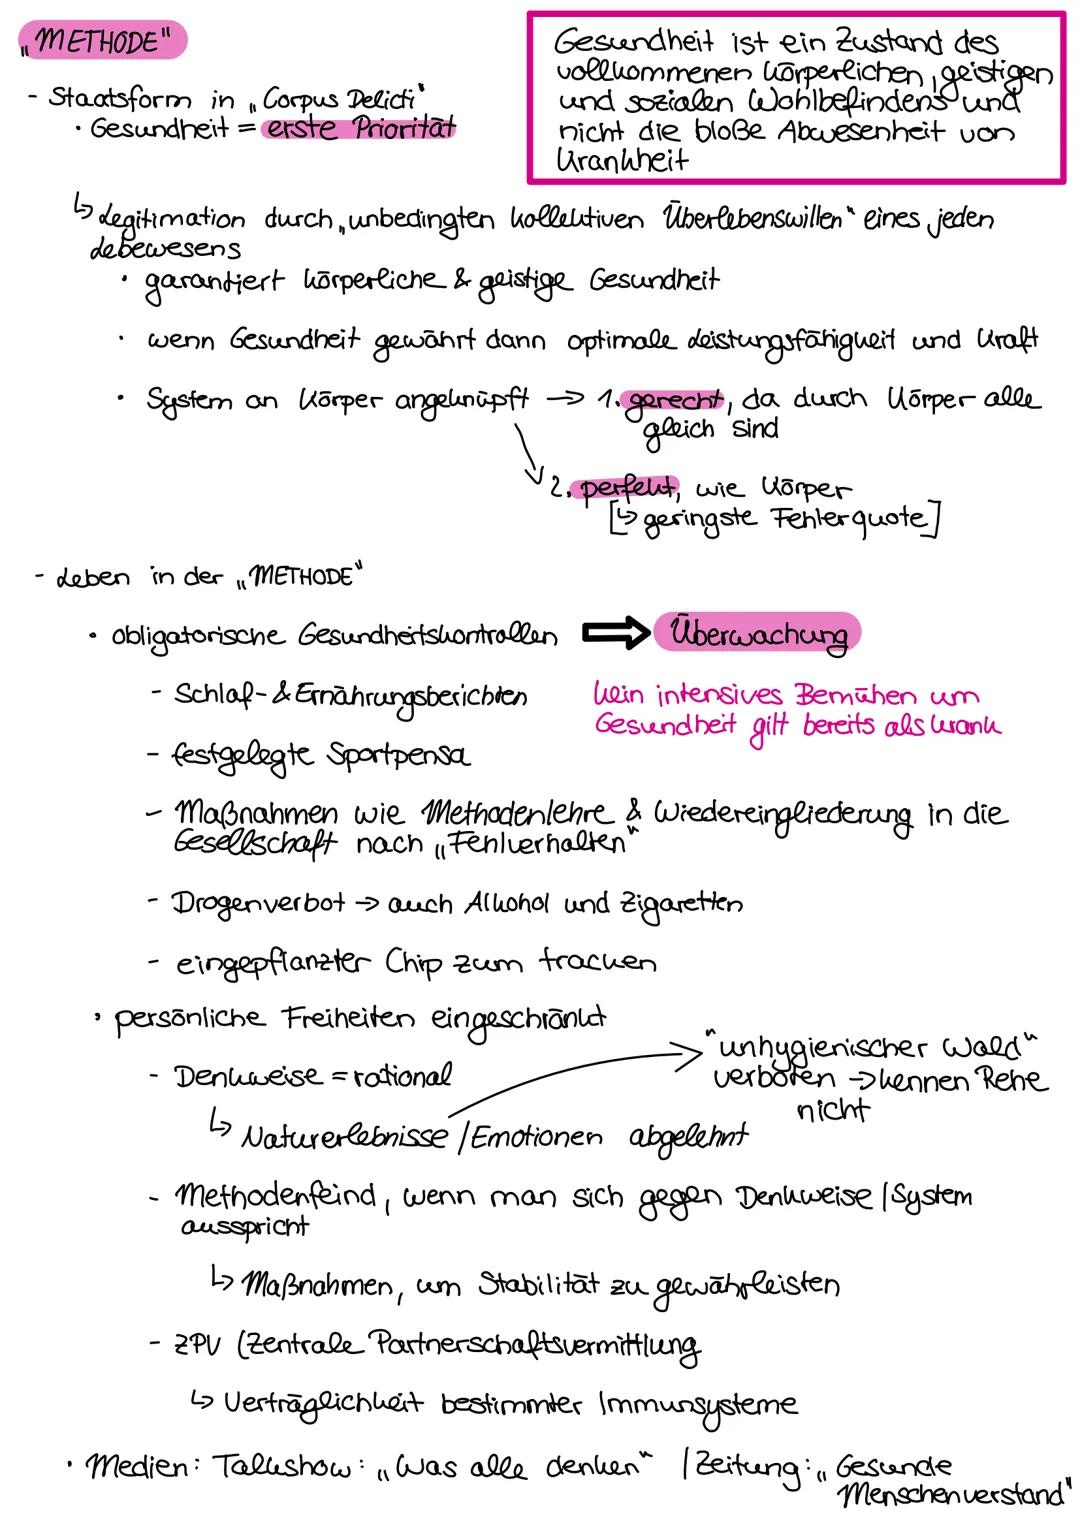 „METHODE"
Gesundheit ist ein Zustand des
vollkommenen körperlichen, geistigen
und sozialen Wohlbefindens und
nicht die bloße Abwesenheit von
Krankheit
- Staatsform in „Corpus Delicti"
• Gesundheit = erste Priorität
↳ Legitimation durch „unbedingten kollektiven Überlebenswillen" eines jeden
Lebewesens
• garantiert körperliche & geistige Gesundheit
• wenn Gesundheit gewährt dann optimale Leistungsfähigkeit und Kraft
• System an Körper angeknüpft → 1. gerecht, da durch Körper alle
gleich sind
2. perfekt, wie Körper
[↳ geringste Fehlerquote]
- Leben in der „METHODE"
• obligatorische Gesundheitskontrollen ⇒ Überwachung
- Schlaf- & Ernährungsberichten
kein intensives Bemühen um
Gesundheit gilt bereits als krank
- festgelegte Sportpensa
- Maßnahmen wie Methodenlehre & Wiedereingliederung in die
Gesellschaft nach „Fehlverhalten"
- Drogenverbot → auch Alkohol und Zigaretten
- eingepflanzter Chip zum tracken
• persönliche Freiheiten eingeschränkt
- Denkweise = rational
"unhygienischer Wald"
verboten → kennen Rehe
nicht
↳ Naturerlebnisse / Emotionen abgelehnt
- Methodenfeind, wenn man sich gegen Denkweise / System
ausspricht
↳ Maßnahmen, um Stabilität zu gewährleisten
- ZPV (Zentrale Partnerschaftsvermittlung
↳ Verträglichkeit bestimmter Immunsysteme
• Medien: Talkshow: „Was alle denken" / Zeitung: „Gesunde
Menschenverstand"